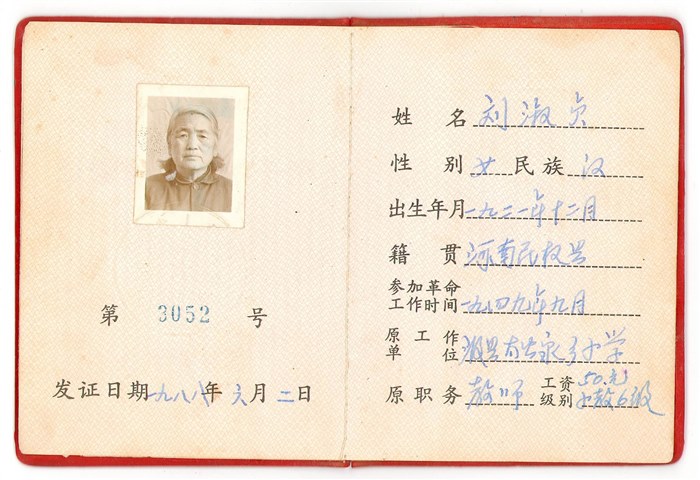 第 3052 号
发证日期一九八八年六月二日
姓名 刘淑贞
性别 女 民族 汉
出生年月 一九二一年十二月
籍贯 河南民权县
参加革命工作时间 一九四九年九月
原工作单位 小学
原职务 教师 工资级别 50.元 小教6级